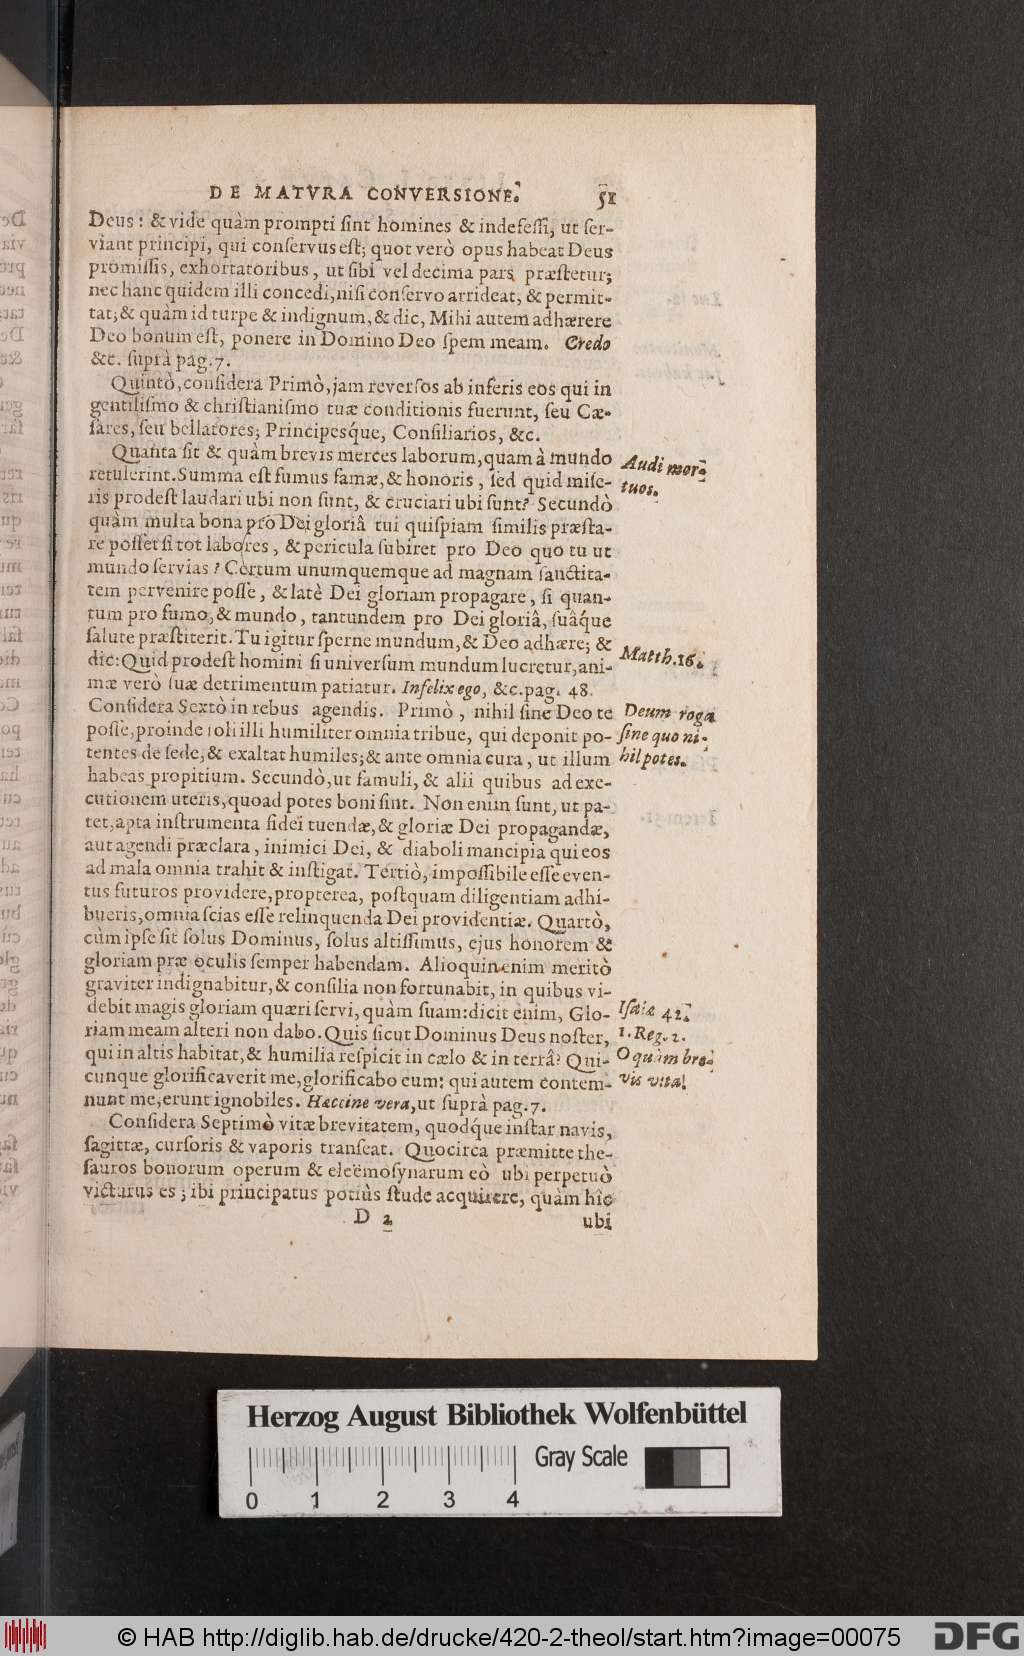 DE MATVRA CONVERSIONE. 51
Deus: & vide quàm prompti ſint homines & indefeſſi, ut ſer-
viant principi, qui conſervus eſt; quot verò opus habeat Deus
promiſſis, exhortatoribus, ut ſibi vel decima pars præſtetur;
nec hanc quidem illi concedi, niſi conſervo arrideat, & permit-
tat; & quàm id turpe & indignum, & dic, Mihi autem adhærere
Deo bonum eſt, ponere in Domino Deo ſpem meam. Credo
&c. ſuprà pag. 7.
Quintò, conſidera Primò, jam reverſos ab inferis eos qui in
gentiliſmo & chriſtianiſmo tuæ conditionis fuerunt, ſeu Cæ-
ſares, ſeu bellatores; Principesq́ue, Conſiliarios, &c.
Quanta ſit & quàm brevis merces laborum, quam à mundo
retulerint. Summa eſt fumus famæ, & honoris, ſed quid miſe-
ris prodeſt laudari ubi non ſunt, & cruciari ubi ſunt? Secundò
quàm multa bona pro Dei gloriâ tui quiſpiam ſimilis præſta-
re poſſet ſi tot labores, & pericula ſubiret pro Deo quo tu ut
mundo ſervias? Certum unumquemque ad magnam ſanctita-
tem pervenire poſſe, & latè Dei gloriam propagare, ſi quan-
tum pro fumo, & mundo, tantundem pro Dei gloriâ, ſuâq́ue
ſalute præſtiterit. Tu igitur ſperne mundum, & Deo adhære; &
dic: Quid prodeſt homini ſi univerſum mundum lucretur, ani-
mæ verò ſuæ detrimentum patiatur. Infelix ego, &c. pag. 48.
Conſidera Sextò in rebus agendis. Primò, nihil ſine Deo te
poſſe, proinde ſoli illi humiliter omnia tribue, qui deponit po-
tentes de ſede, & exaltat humiles; & ante omnia cura, ut illum
habeas propitium. Secundò, ut famuli, & alii quibus ad exe-
cutionem uteris, quoad potes boni ſint. Non enim ſunt, ut pa-
tet, apta inſtrumenta fidei tuendæ, & gloriæ Dei propagandæ,
aut agendi præclara, inimici Dei, & diaboli mancipia qui eos
ad mala omnia trahit & inſtigat. Tertiò, impoſſibile eſſe even-
tus futuros providere, propterea, poſtquam diligentiam adhi-
bueris, omnia ſcias eſſe relinquenda Dei providentiæ. Quartò,
cùm ipſe ſit ſolus Dominus, ſolus altiſſimus, ejus honorem &
gloriam præ oculis ſemper habendam. Alioquin enim meritò
graviter indignabitur, & conſilia non fortunabit, in quibus vi-
debit magis gloriam quæri ſervi, quàm ſuam: dicit enim, Glo-
riam meam alteri non dabo. Quis ſicut Dominus Deus noſter,
qui in altis habitat, & humilia reſpicit in cælo & in terrâ? Qui-
cunque glorificaverit me, glorificabo eum: qui autem contem-
nunt me, erunt ignobiles. Hæccine vera, ut ſuprà pag. 7.
Conſidera Septimò vitæ brevitatem, quodq́ue inſtar navis,
ſagittæ, curſoris & vaporis tranſeat. Quocirca præmitte the-
ſauros bonorum operum & eleëmoſynarum eò ubi perpetuò
victurus es; ibi principatus potiùs ſtude acquirere, quàm hîc
D 2 ubi
Audi mor-
tuos.
Matth. 16.
Deum roga
ſine quo ni-
hil potes.
Iſaiæ 42.
1. Reg. 2.
O quàm bre-
vis vita!
Herzog August Bibliothek Wolfenbüttel
Gray Scale
0 1 2 3 4
© HAB http://diglib.hab.de/drucke/420-2-theol/start.htm?image=00075
DFG